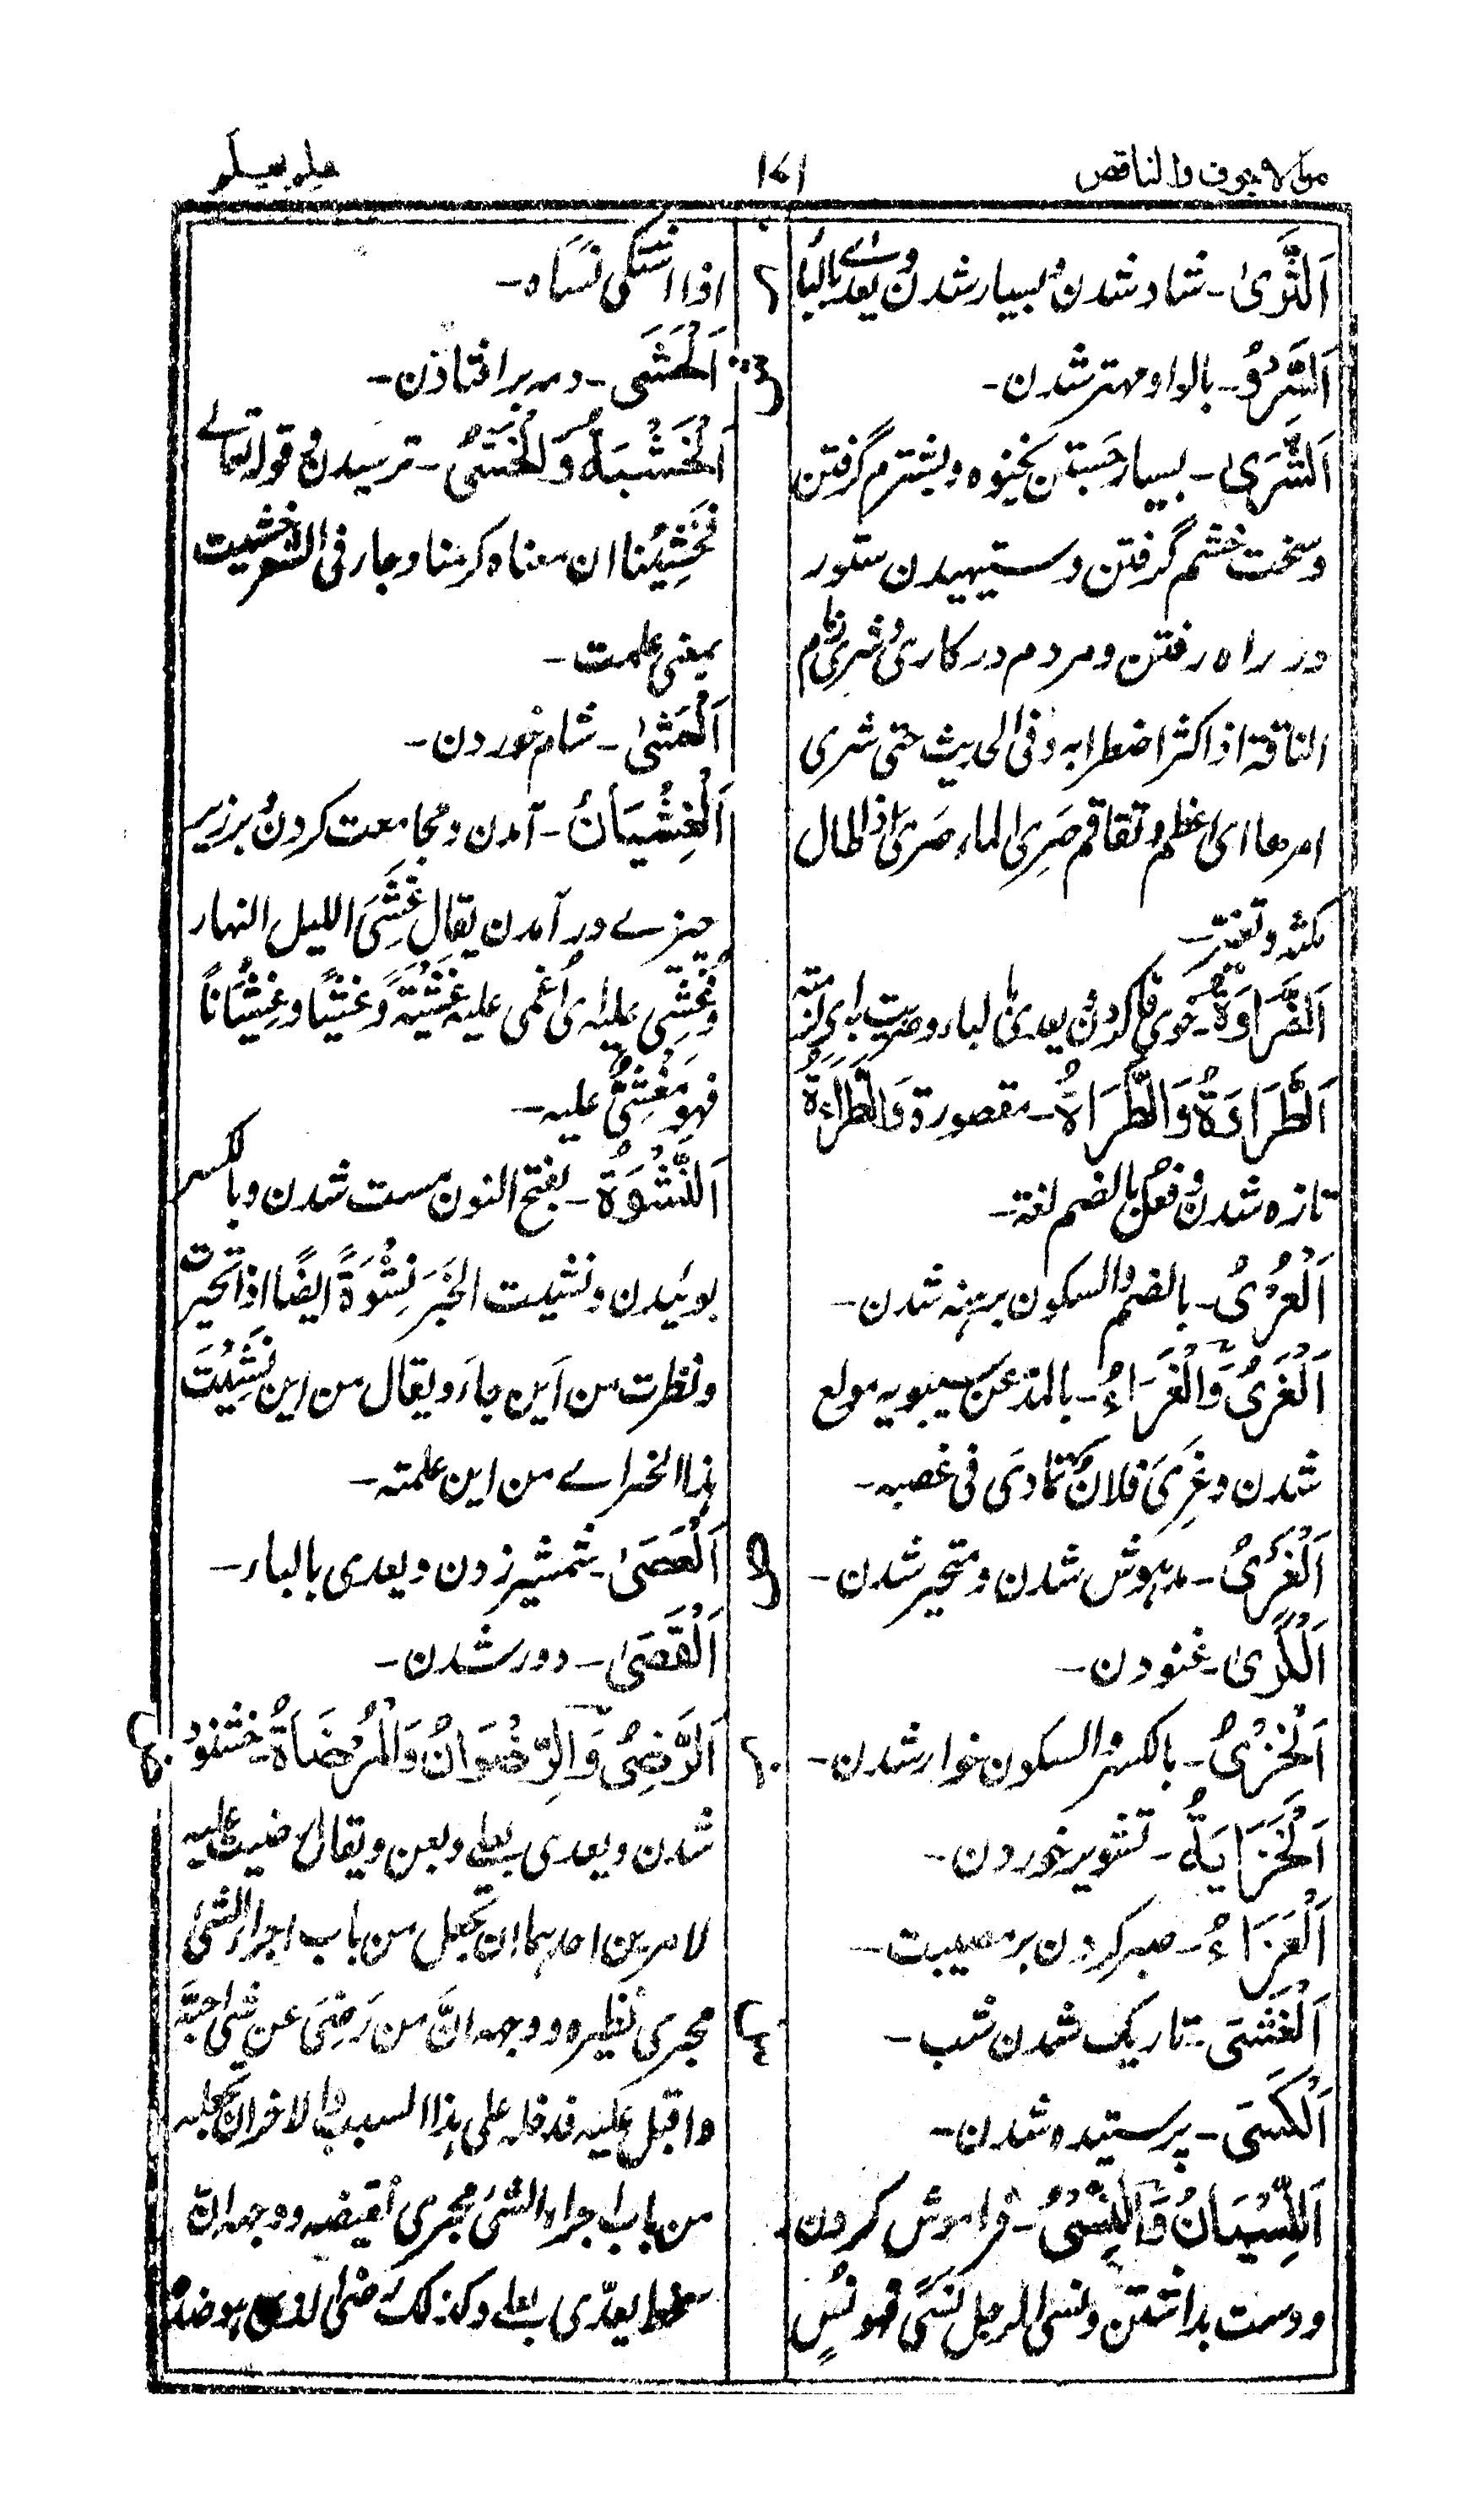 من الاجوف والناقص
۱۷۱
اَلثَّرىٰ - شاد شدن و بسیار شدن و یعدی بالباء
اَلسَّرْوُ - بالا و مهتر شدن -
اَلشَّرىٰ - بسیار جستن بخنوه و بشترم گرفتن
و سخت خشم گرفتن و ستیهیدن ستور
در راه رفتن و مردم در کاری و شری زمام
الناقة اذا کثر اضطرابه و فی الحدیث حتی شری
امرها ای اعظم و تفاقم صَرِی الماء صَرًى اذا طال
مکثه و تغیّر -
اَلضَّرَاوَةُ - خوی کردن یعدی بالباء و ضریت به ای لزمته
اَلطَّرَاوَةُ وَالطَّرَاةُ - مقصورة وَالطَّرَاءَةُ
تازه شدن و فعُل بالضم لغة -
اَلْعُرْیُ - بالضم والسکون برهنه شدن -
اَلْغَرىُ وَالْغَرَاءُ - بالمد عن سیبویه مولع
شدن و غَرِیَ فلان تمادی فی غضبه -
اَلْغَرْیُ - مدهوش شدن و متحیر شدن -
اَلْکَرىٰ - غنودن -
اَلْخِزْیُ - بالکسر والسکون خوار شدن -
اَلْخَزَایَةُ - تشویر خوردن -
اَلْعَزَاءُ - صبر کردن بر مصیبت -
اَلْغَسَى - تاریک شدن شب -
اَلْکَسَى - پوستیده شدن -
اَلنِّسْیَانُ وَالنَّسْیُ - فراموش کردن
و دست بداشتن و نسی الرجل نَسًى فهو نَسٍ
اذا اشتکی نساه -
اَلْحَشَى - دمه برافتادن -
اَلْخَشْیَةُ وَالْخَشْیُ - ترسیدن و قوله تعالی
فَخَشِیْنَا ان معناه کرهنا و جاء فی الشعر خشیت
بمعنی علمت -
اَلْعَشىٰ - شام خوردن -
اَلْغِشْیَانُ - آمدن و مجامعت کردن و برزبر
چیزے در آمدن یقال غَشِیَ اللیل النهار
وَغُشِی علیه ای اُغمی علیه غَشْیَةً وَغَشْیًا و غِشْیَانًا
فهو مَغْشِیٌّ علیه -
اَلنَّشْوَةُ - بفتح النون مست شدن و بالکسر
بوئیدن و نشیت الخَبَرَ نِشْوَةً ایضًا اذا تخیرت
و نظرت من اَین جاء و یقال من این نَشِیْتَ
هذا الخبر اے من این علمته -
اَلْعَصَىٰ - شمشیر زدن و یعدی بالباء -
اَلْقَصَىٰ - دور شدن -
اَلرِّضىٰ وَالرِّضْوَانُ وَالْمَرْضَاةُ - خشنود
شدن و یعدی بعلی و بعن و یقال رضیت علیه
لامرین احدهما ان تجعل من باب اجراء الشئ
مجری نظیره و وجهه انَّ من رَضِیَ عن شئ احبَّه
و اقبل علیه فدخله علی هذا السبب والاخر ان تجعله
من باب اجراء الشئ مجری نقیضه و وجهه ان
سخط یعدّی بعلی و کذلک رضی الذی هو ضده